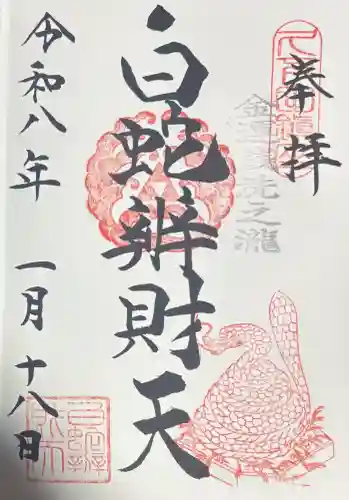 奉拝
金運銭洗之瀧
白蛇辨財天
令和八年 一月十八日